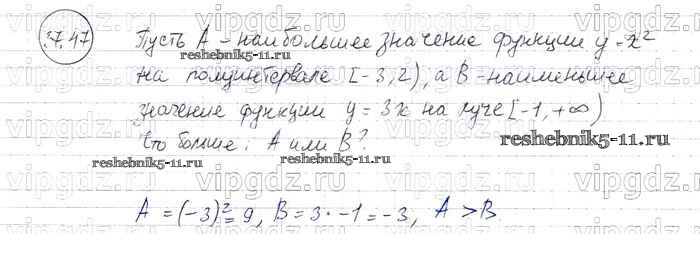 vipgdz.ru vipgdz.ru vipgdz.ru vipgdz.ru
37.47 Пусть A - наибольшее значение функции y = x²
reshebnik5-11.ru
на полуинтервале [-3,2), а B - наименьшее
vipgdz.ru vipgdz.ru vipgdz.ru vipgdz.ru
значение функции y = 3x на луче [-1, +∞)
Что больше: A или B?
reshebnik5-11.ru
reshebnik5-11.ru reshebnik5-11.ru
vipgdz.ru vipgdz.ru vipgdz.ru vipgdz.ru
A = (-3)² = 9, B = 3 · -1 = -3, A > B